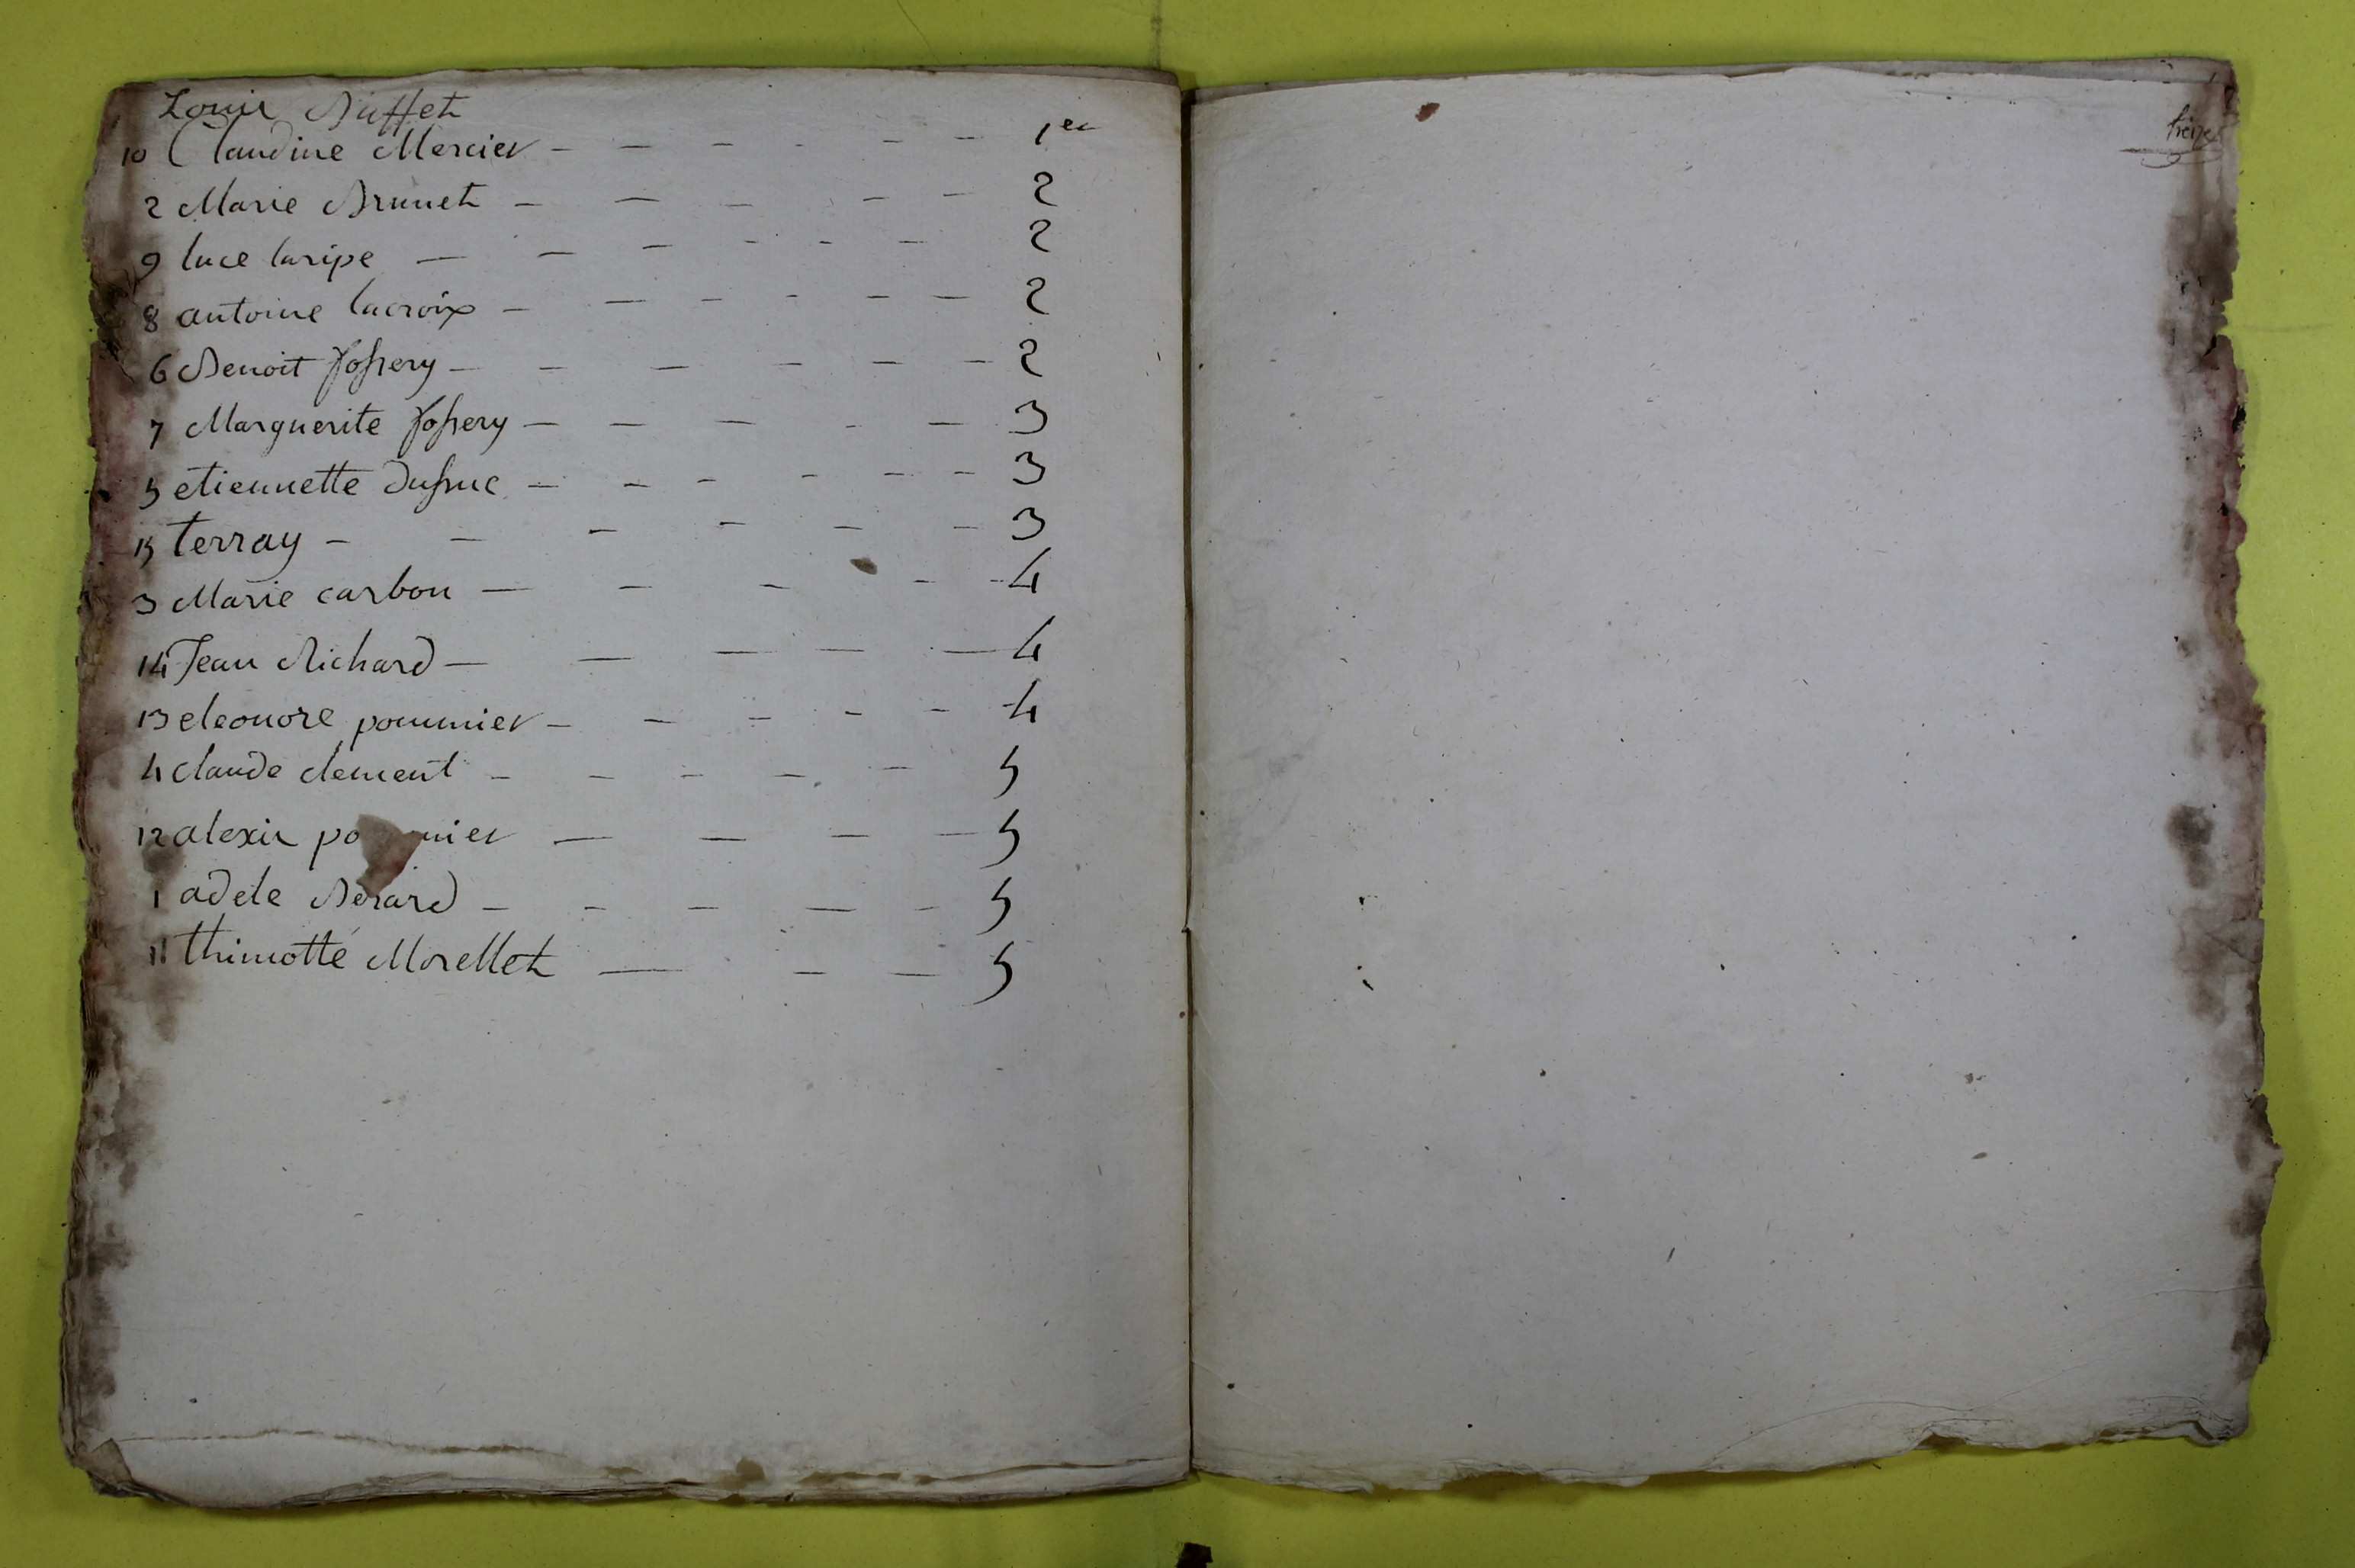 Louis Buffet
10 Claudine Mercier - - - - - - 1er
2 Marie Brunet - - - - - 2
9 luce laripe - - - - - - 2
8 antoine lacroix - - - - - - 2
6 Benoit fossery - - - - - - 2
7 Marguerite fossery - - - - - 3
5 etiennette dussuc - - - - - - 3
15 terray - - - - - - 3
3 Marie carbon - - - - - 4
14 Jean Richard - - - - - 4
13 eleonore pommier - - - - - 4
4 claude clement - - - - - 5
12 alexis po mier - - - - 5
1 adele Berard - - - - - 5
11 thimotté Morellet - - - 5
treize